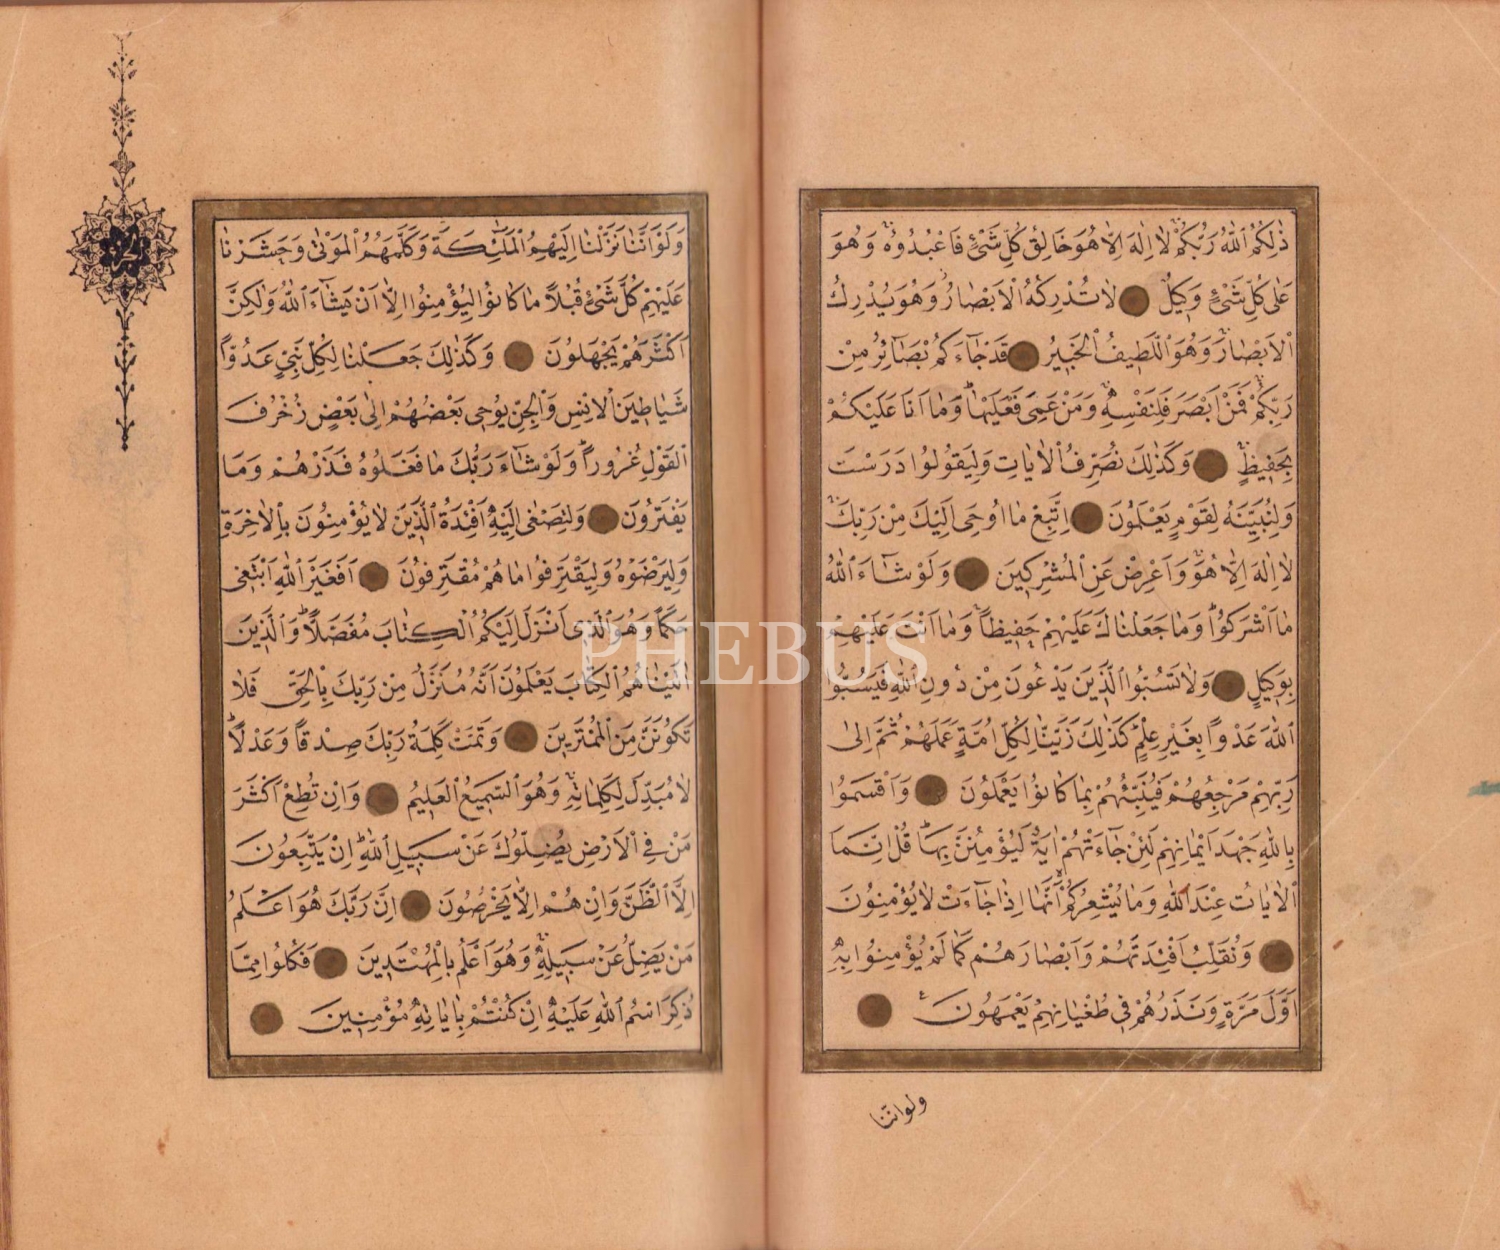 ذٰلِكُمُ اللّٰهُ رَبُّكُمْ لَا اِلٰهَ اِلَّا هُوَ خَالِقُ كُلِّ شَيْءٍ فَاعْبُدُوهُ وَهُوَ
عَلٰى كُلِّ شَيْءٍ وَكِيلٌ لَا تُدْرِكُهُ الْاَبْصَارُ وَهُوَ يُدْرِكُ
الْاَبْصَارَ وَهُوَ اللَّطِيفُ الْخَبِيرُ قَدْ جَاءَكُمْ بَصَائِرُ مِنْ
رَبِّكُمْ فَمَنْ اَبْصَرَ فَلِنَفْسِهِ وَمَنْ عَمِيَ فَعَلَيْهَا وَمَا اَنَا عَلَيْكُمْ
بِحَفِيظٍ وَكَذٰلِكَ نُصَرِّفُ الْاٰيَاتِ وَلِيَقُولُوا دَرَسْتَ
وَلِنُبَيِّنَهُ لِقَوْمٍ يَعْلَمُونَ اِتَّبِعْ مَا اُوحِيَ اِلَيْكَ مِنْ رَبِّكَ
لَا اِلٰهَ اِلَّا هُوَ وَاَعْرِضْ عَنِ الْمُشْرِكِينَ وَلَوْ شَاءَ اللّٰهُ
مَا اَشْرَكُوا وَمَا جَعَلْنَاكَ عَلَيْهِمْ حَفِيظًا وَمَا اَنْتَ عَلَيْهِمْ
بِوَكِيلٍ وَلَا تَسُبُّوا الَّذِينَ يَدْعُونَ مِنْ دُونِ اللّٰهِ فَيَسُبُّوا
اللّٰهَ عَدْوًا بِغَيْرِ عِلْمٍ كَذٰلِكَ زَيَّنَّا لِكُلِّ اُمَّةٍ عَمَلَهُمْ ثُمَّ اِلٰى
رَبِّهِمْ مَرْجِعُهُمْ فَيُنَبِّئُهُمْ بِمَا كَانُوا يَعْمَلُونَ وَاَقْسَمُوا
بِاللّٰهِ جَهْدَ اَيْمَانِهِمْ لَئِنْ جَاءَتْهُمْ اٰيَةٌ لَيُؤْمِنُنَّ بِهَا قُلْ اِنَّمَا
الْاٰيَاتُ عِنْدَ اللّٰهِ وَمَا يُشْعِرُكُمْ اَنَّهَا اِذَا جَاءَتْ لَا يُؤْمِنُونَ
وَنُقَلِّبُ اَفْئِدَتَهُمْ وَاَبْصَارَهُمْ كَمَا لَمْ يُؤْمِنُوا بِهِ
اَوَّلَ مَرَّةٍ وَنَذَرُهُمْ فِي طُغْيَانِهِمْ يَعْمَهُونَ
ولواننا
وَلَوْ اَنَّنَا نَزَّلْنَا اِلَيْهِمُ الْمَلٰئِكَةَ وَكَلَّمَهُمُ الْمَوْتٰى وَحَشَرْنَا
عَلَيْهِمْ كُلَّ شَيْءٍ قُبُلًا مَا كَانُوا لِيُؤْمِنُوا اِلَّا اَنْ يَشَاءَ اللّٰهُ وَلٰكِنَّ
اَكْثَرَهُمْ يَجْهَلُونَ وَكَذٰلِكَ جَعَلْنَا لِكُلِّ نَبِيٍّ عَدُوًّا
شَيَاطِينَ الْاِنْسِ وَالْجِنِّ يُوحِي بَعْضُهُمْ اِلٰى بَعْضٍ زُخْرُفَ
الْقَوْلِ غُرُورًا وَلَوْ شَاءَ رَبُّكَ مَا فَعَلُوهُ فَذَرْهُمْ وَمَا
يَفْتَرُونَ وَلِتَصْغٰى اِلَيْهِ اَفْئِدَةُ الَّذِينَ لَا يُؤْمِنُونَ بِالْاٰخِرَةِ
وَلِيَرْضَوْهُ وَلِيَقْتَرِفُوا مَا هُمْ مُقْتَرِفُونَ اَفَغَيْرَ اللّٰهِ اَبْتَغِي
حَكَمًا وَهُوَ الَّذِي اَنْزَلَ اِلَيْكُمُ الْكِتَابَ مُفَصَّلًا وَالَّذِينَ
اٰتَيْنَاهُمُ الْكِتَابَ يَعْلَمُونَ اَنَّهُ مُنَزَّلٌ مِنْ رَبِّكَ بِالْحَقِّ فَلَا
تَكُونَنَّ مِنَ الْمُمْتَرِينَ وَتَمَّتْ كَلِمَةُ رَبِّكَ صِدْقًا وَعَدْلًا
لَا مُبَدِّلَ لِكَلِمَاتِهِ وَهُوَ السَّمِيعُ الْعَلِيمُ وَاِنْ تُطِعْ اَكْثَرَ
مَنْ فِي الْاَرْضِ يُضِلُّوكَ عَنْ سَبِيلِ اللّٰهِ اِنْ يَتَّبِعُونَ
اِلَّا الظَّنَّ وَاِنْ هُمْ اِلَّا يَخْرُصُونَ اِنَّ رَبَّكَ هُوَ اَعْلَمُ
مَنْ يَضِلُّ عَنْ سَبِيلِهِ وَهُوَ اَعْلَمُ بِالْمُهْتَدِينَ فَكُلُوا مِمَّا
ذُكِرَ اسْمُ اللّٰهِ عَلَيْهِ اِنْ كُنْتُمْ بِاٰيَاتِهِ مُؤْمِنِينَ
PHEBUS